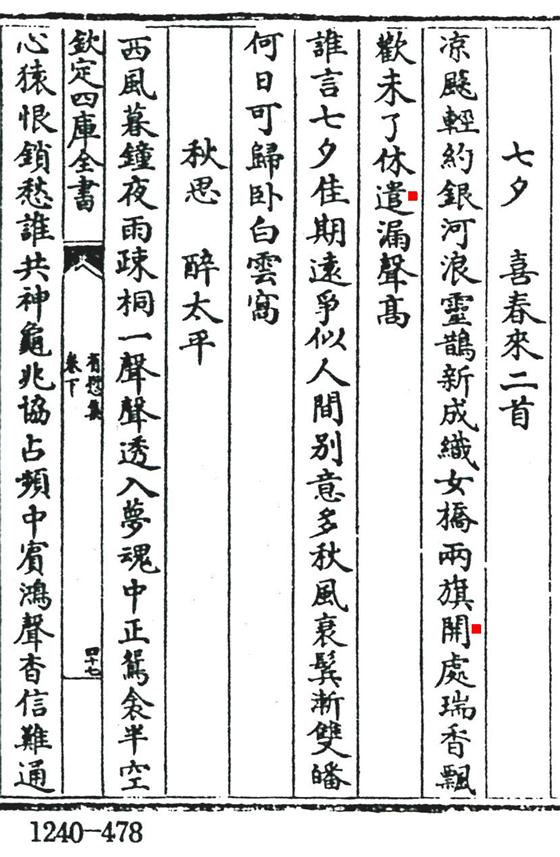 七夕　喜春來二首
凉飈輕約銀河浪靈鵲新成織女橋兩旗開處瑞香飄
歡未了休遣漏聲髙
誰言七夕佳期遠爭似人間别意多秋風衰鬂漸雙皤
何日可歸卧白雲窩
秋思　醉太平
西風暮鐘夜雨疎桐一聲聲透入夢魂中正鴛衾半空
欽定四庫全書
卷下
四十七
心猿恨鎖愁誰共神龜兆協占頻中賓鴻聲杳信難通
1240-478